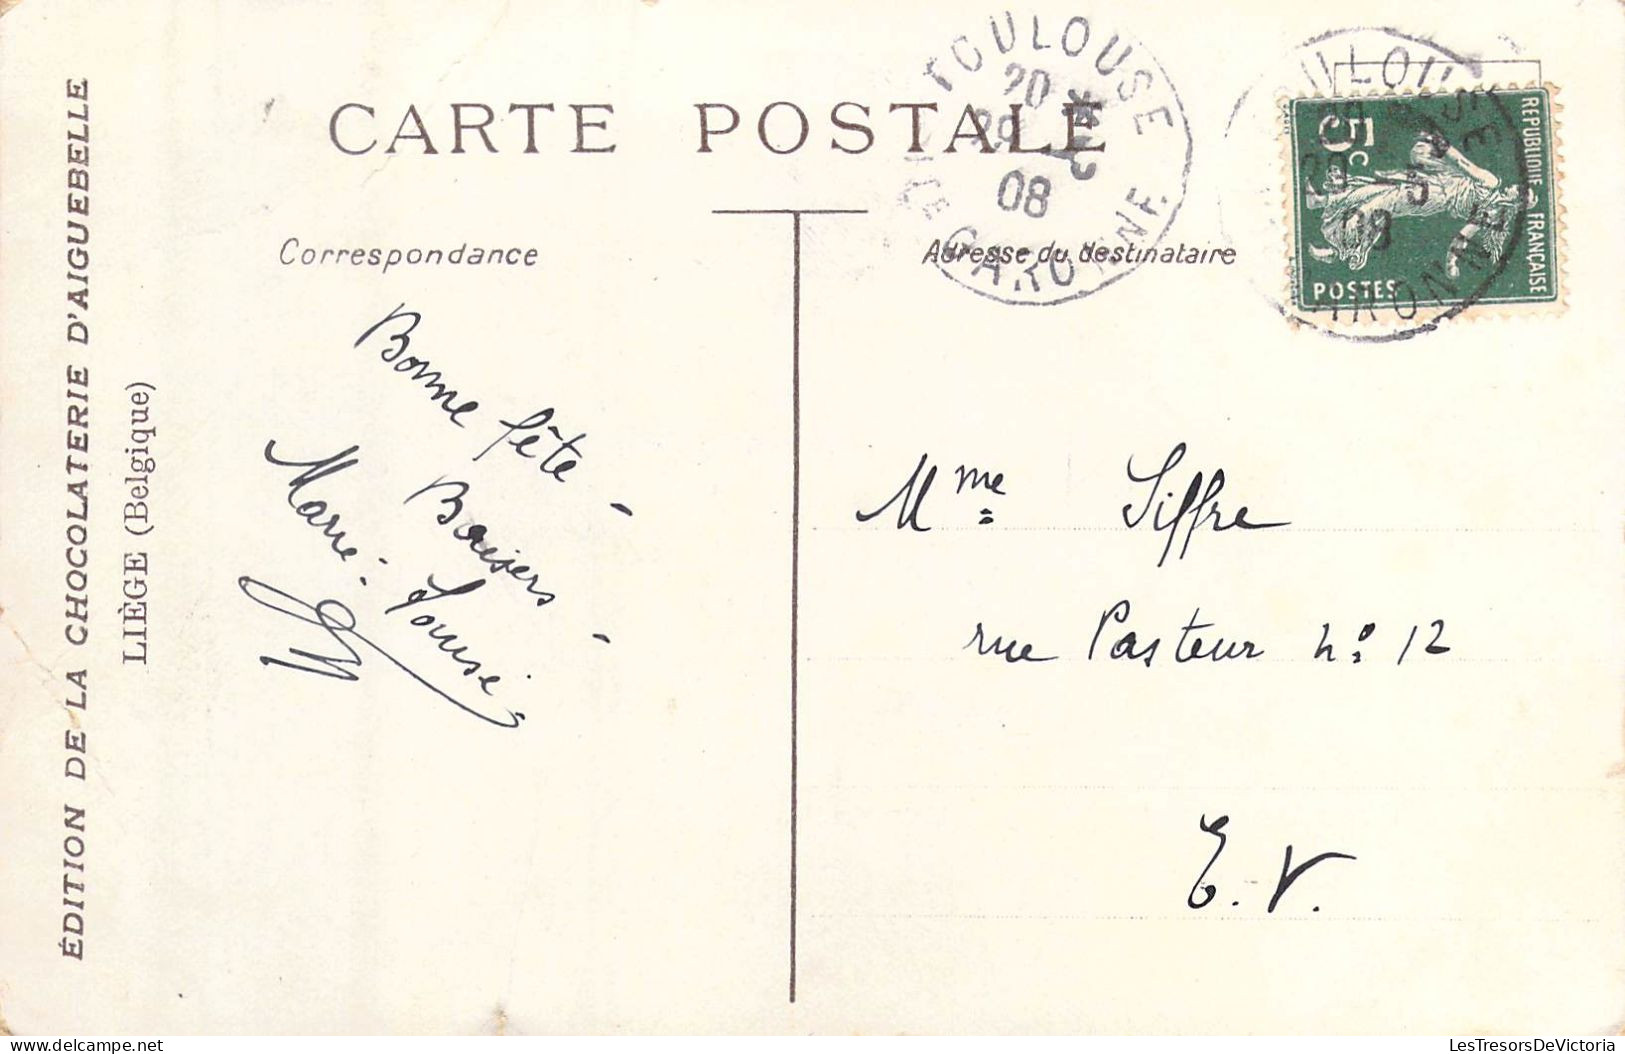 CARTE POSTALE
Correspondance
Adresse du destinataire
ÉDITION DE LA CHOCOLATERIE D'AIGUEBELLE
LIÈGE (Belgique)
TOULOUSE
20
08
GARONNE
5c
REPUBLIQUE FRANÇAISE
POSTES
Bonne fête -
Baisers -
Marie-Louise
Mme Siffre
rue Pasteur No 12
E. V.
LesTresorsDeVictoria